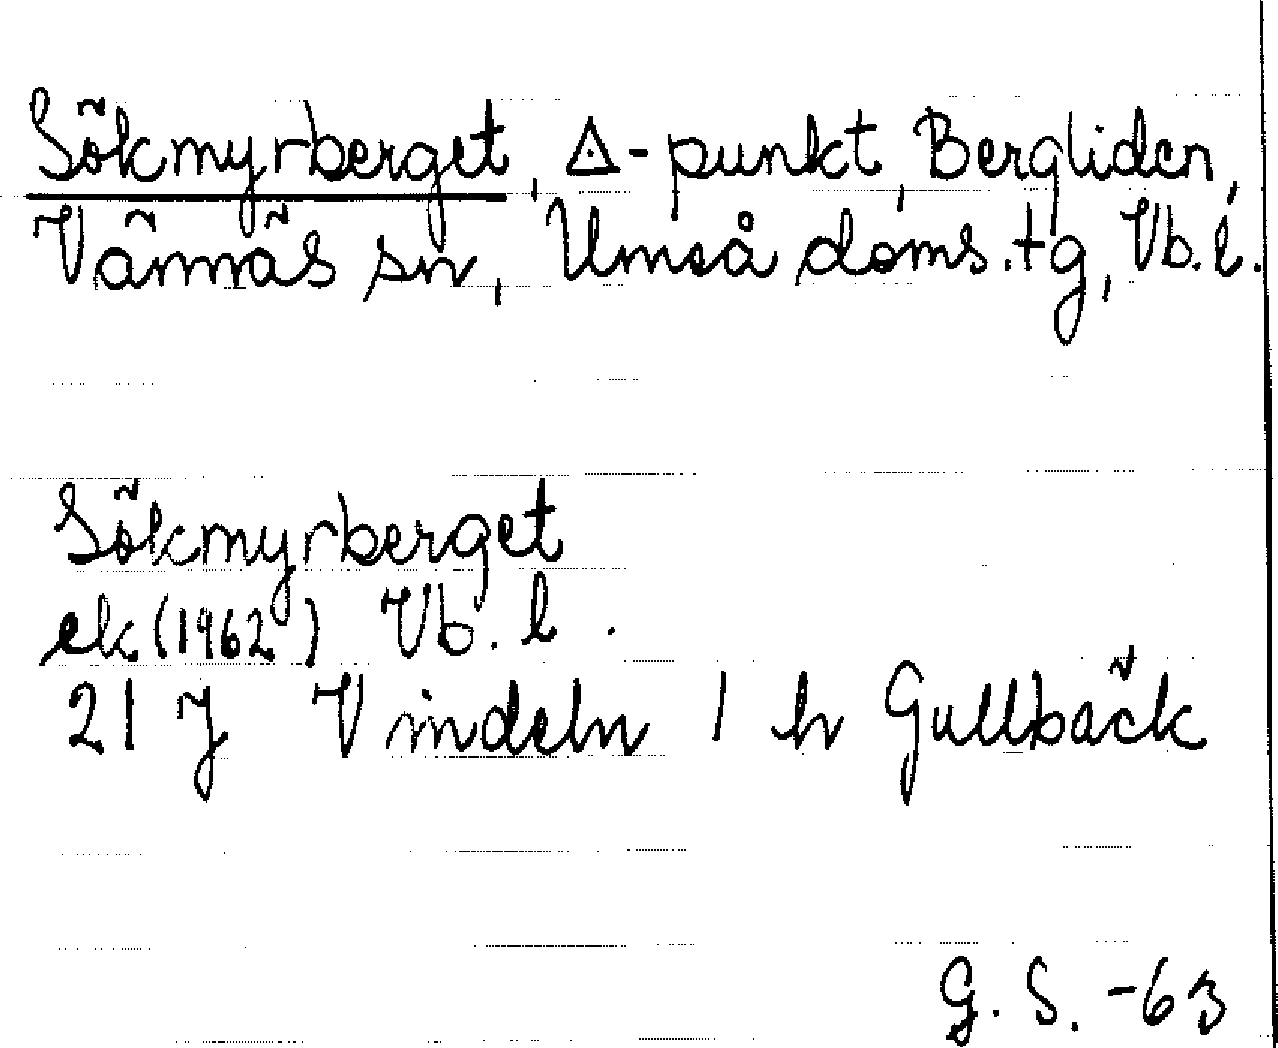 Sökmyrberget, △-punkt, Bergliden,
Vännäs sn, Umeå doms.tg, Vb.l.
Sökmyrberget
ek (1962) Vb. l.
21 J Vindeln 1 h Gullbäck
G. S. -63